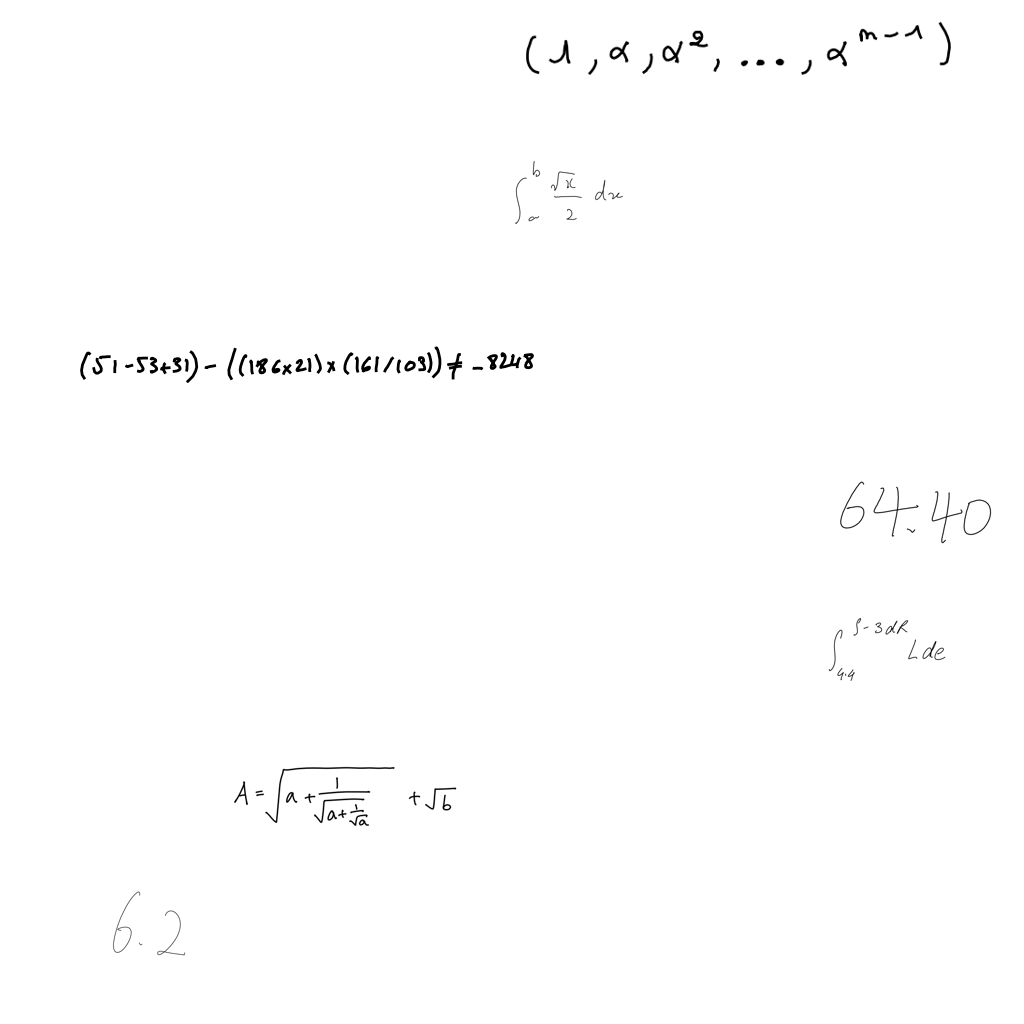 (1, α, α², ..., α^{m-1})
\int_a^b \frac{\sqrt{x}}{2} dx
(51-53+31)-((186×21)×(161/103))≠-8248
64.40
\int_{4.4}^{S-3dR} Lde
A=\sqrt{a+\frac{1}{\sqrt{a+\frac{1}{\sqrt{a}}}}}+\sqrt{b}
6.2